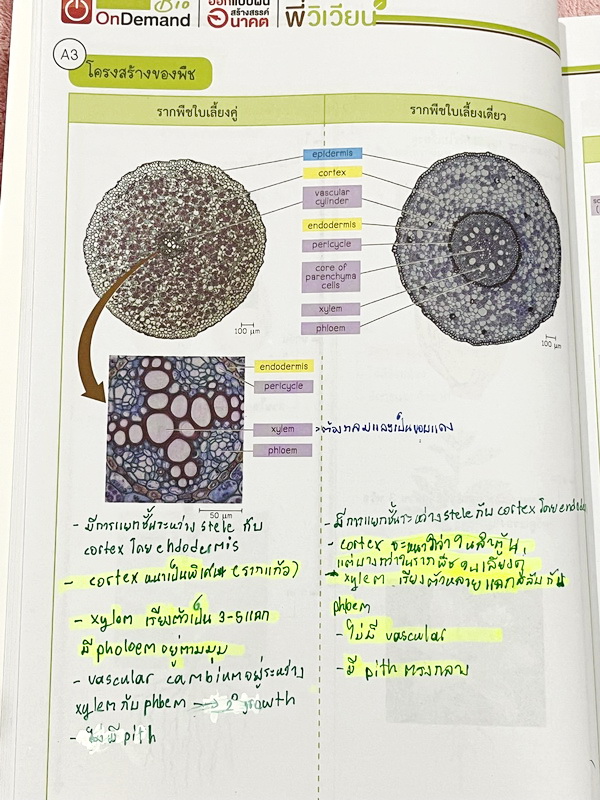 Bio
OnDemand
ออกแบบฝัน
สร้างสรรค์
อนาคต
พี่วิเวียน
A3
โครงสร้างของพืช
รากพืชใบเลี้ยงคู่
รากพืชใบเลี้ยงเดี่ยว
epidermis
cortex
vascular
cylinder
endodermis
pericycle
core of
parenchyma
cells
xylem
phloem
100 μm
100 μm
endodermis
pericycle
xylem
phloem
50 μm
ต้องกลมและเป็นขอบแดง
- มีการแยกชั้นระหว่าง stele กับ
cortex โดย endodermis
- cortex หนาเป็นพิเศษ (รากแก้ว)
- xylem เรียงตัวเป็น 3-5 แฉก
มี pholoem อยู่ตามมุม
- vascular cambium อยู่ระหว่าง
xylem กับ phloem → 2° growth
- ไม่มี pith
- มีการแยกชั้นระหว่าง stele กับ cortex โดย endo
- cortex จะหนากว่าในลำต้น
แต่บางกว่าในรากพืชใบเลี้ยงคู่
- xylem เรียงตัวหลายแฉกสลับกับ
phloem
- ไม่มี vascular
- มี pith ตรงกลาง